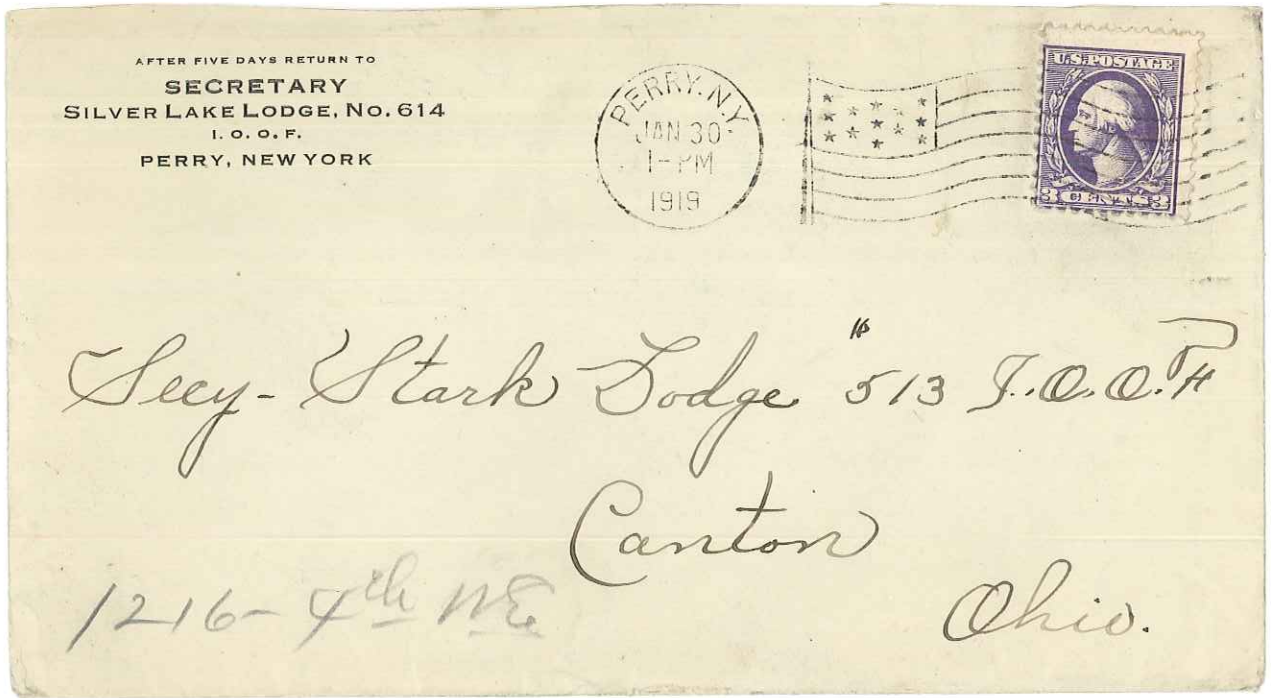 AFTER FIVE DAYS RETURN TO
SECRETARY
SILVER LAKE LODGE, NO. 614
I. O. O. F.
PERRY, NEW YORK
PERRY. N.Y.
JAN 30
1-PM
1919
U.S. POSTAGE
3 CENTS 3
Secy- Stark Lodge # 513 I.O.O.F
Canton
Ohio.
1216- 4th NE